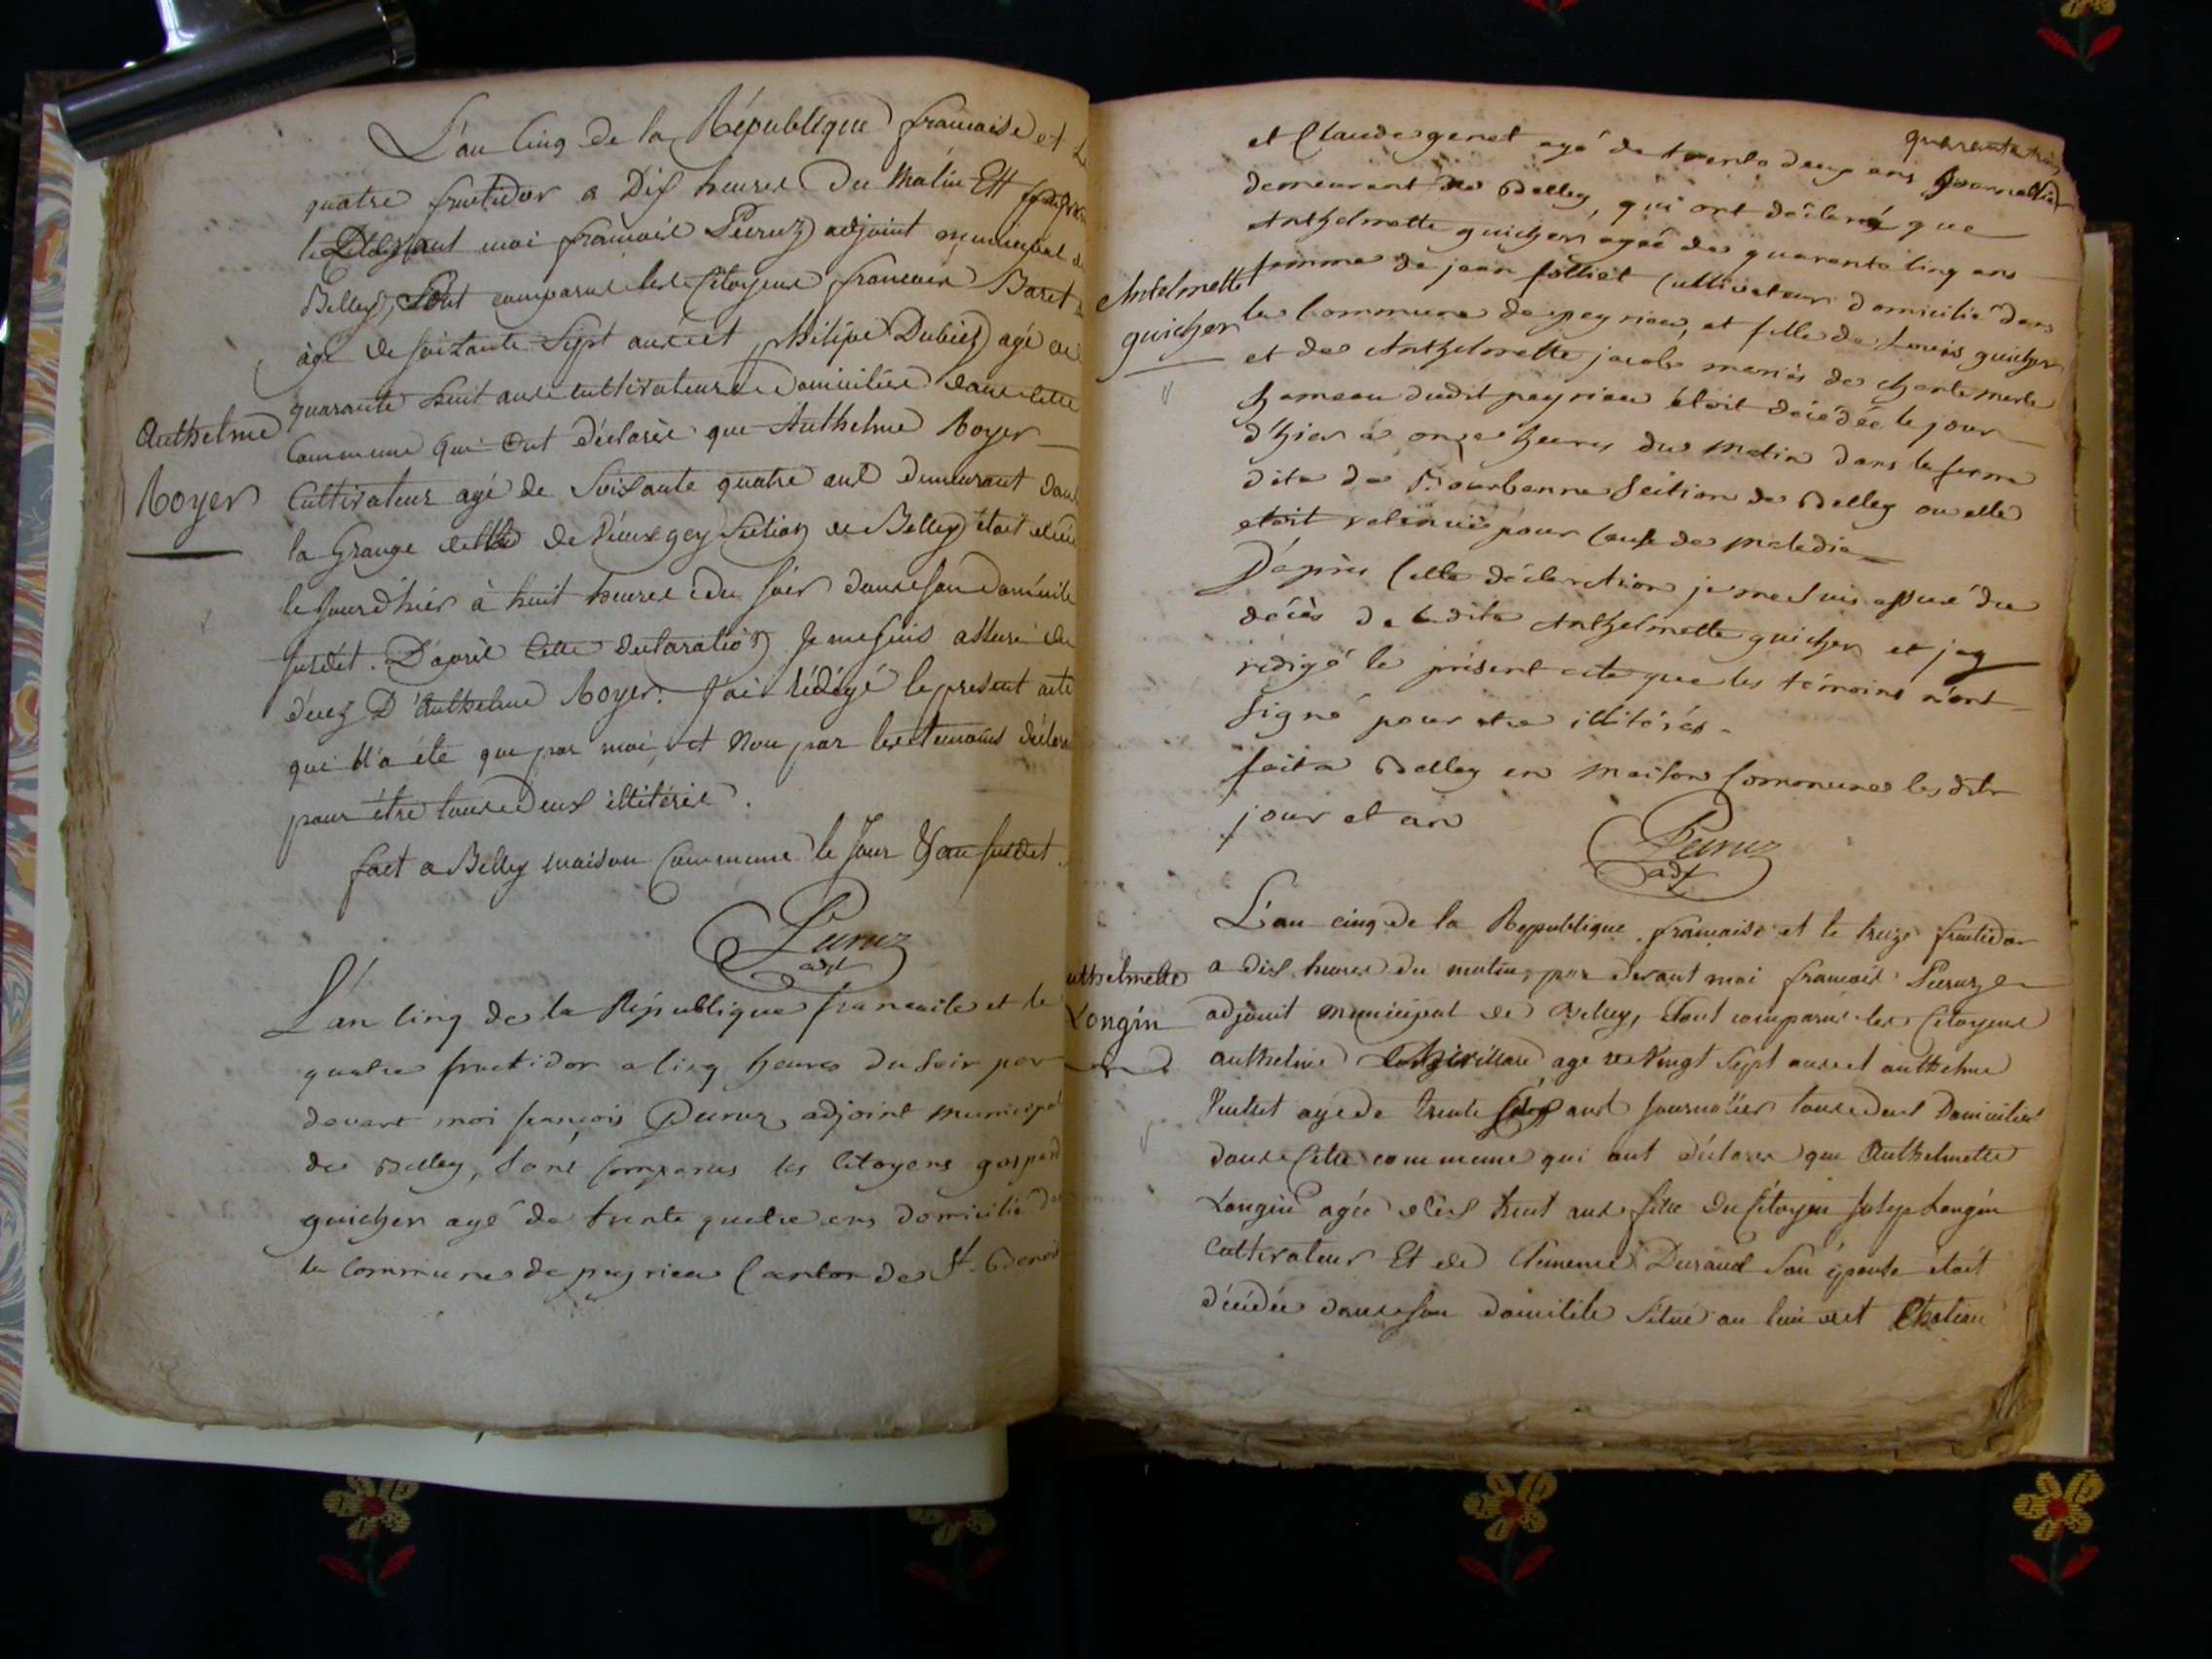 L'an Cinq de la République francaise et Le
quatre fructidor a Dix heures du Matin Et
moi francois Peruz adjoint municipal de
Belley, Sont comparus les Citoyens francois Baret
âgé de soixante Sept ans et philipe Dubiez agé de
quarante huit ans cultivateurs Domiciliés dans cette
Commune qui Ont déclarés que Anthelme Royer
Anthelme
Royer
Cultivateur agé de Soixante quatre ans demeurant dans
la Grange de Section de Belley était
le Jour d'hiér à huit heures du soir dans son domicile
susdit. D'après Cette declaration Je me suis assuré du
décez D'Anthelme Royer. J'ai rédigé le present acte
qui N'a été que par moi, et Non par les temoins
pour être tous deux illitérés.
fait a Belley maison Commune le Jour & an susdit.
Peruz
adjt
L'an Cinq de la République francaise et le
quatre fructidor a Cinq heures du soir par
devant moi françois Peruz adjoint municipal
de Belley, sont Comparus les Citoyens gaspard
guicher agé de trente quatre ans domicilié
la Commune de peyrieu Canton de St. Benoit
quarante trois
et Claude genet agé de trente deux ans Journallier
demeurant de Belley, qui ont déclaré que
Anthelmette guicher agée de quarante Cinq ans
femme de jean folliet Cultivateur domicilié dans
Antelmette
guicher
la Commune de peyrieu, et fille de Louis guicher
et de Anthelmette jacob mariés de chantemerle
hameau dudit peyrieu étoit décédée le jour
d'hier a onze heures du matin dans la ferme
dite de Bourbanne Section de Belley ou elle
etoit retenue pour Cause de maladie
D'après Cette déclaration je me suis assuré du
décès de ladite Anthelmette guicher et jay
rédigé le présent acte que les témoins n'ont
signé pour etre illitérés.
fait a Belley en maison Commune les dits
jour et an
Peruz
adjt
L'an cinq de la Republique francaise et le treize fructidor
a dix heures du matin, par devant moi francois Peruz
adjoint municipal de Belley, Sont comparus les Citoyens
Anthelmette
Longin
anthelme agé de Vingt Sept ans et anthelme
agé de trente ans Journalier tous deux Domiciliés
dans Cette commune qui ont déclarés que Anthelmette
Longin agée de huit ans fille du Citoyen Longin
Cultivateur Et de Durand Son épouse était
décédée dans son domicile Situé au lieu dit Chateau